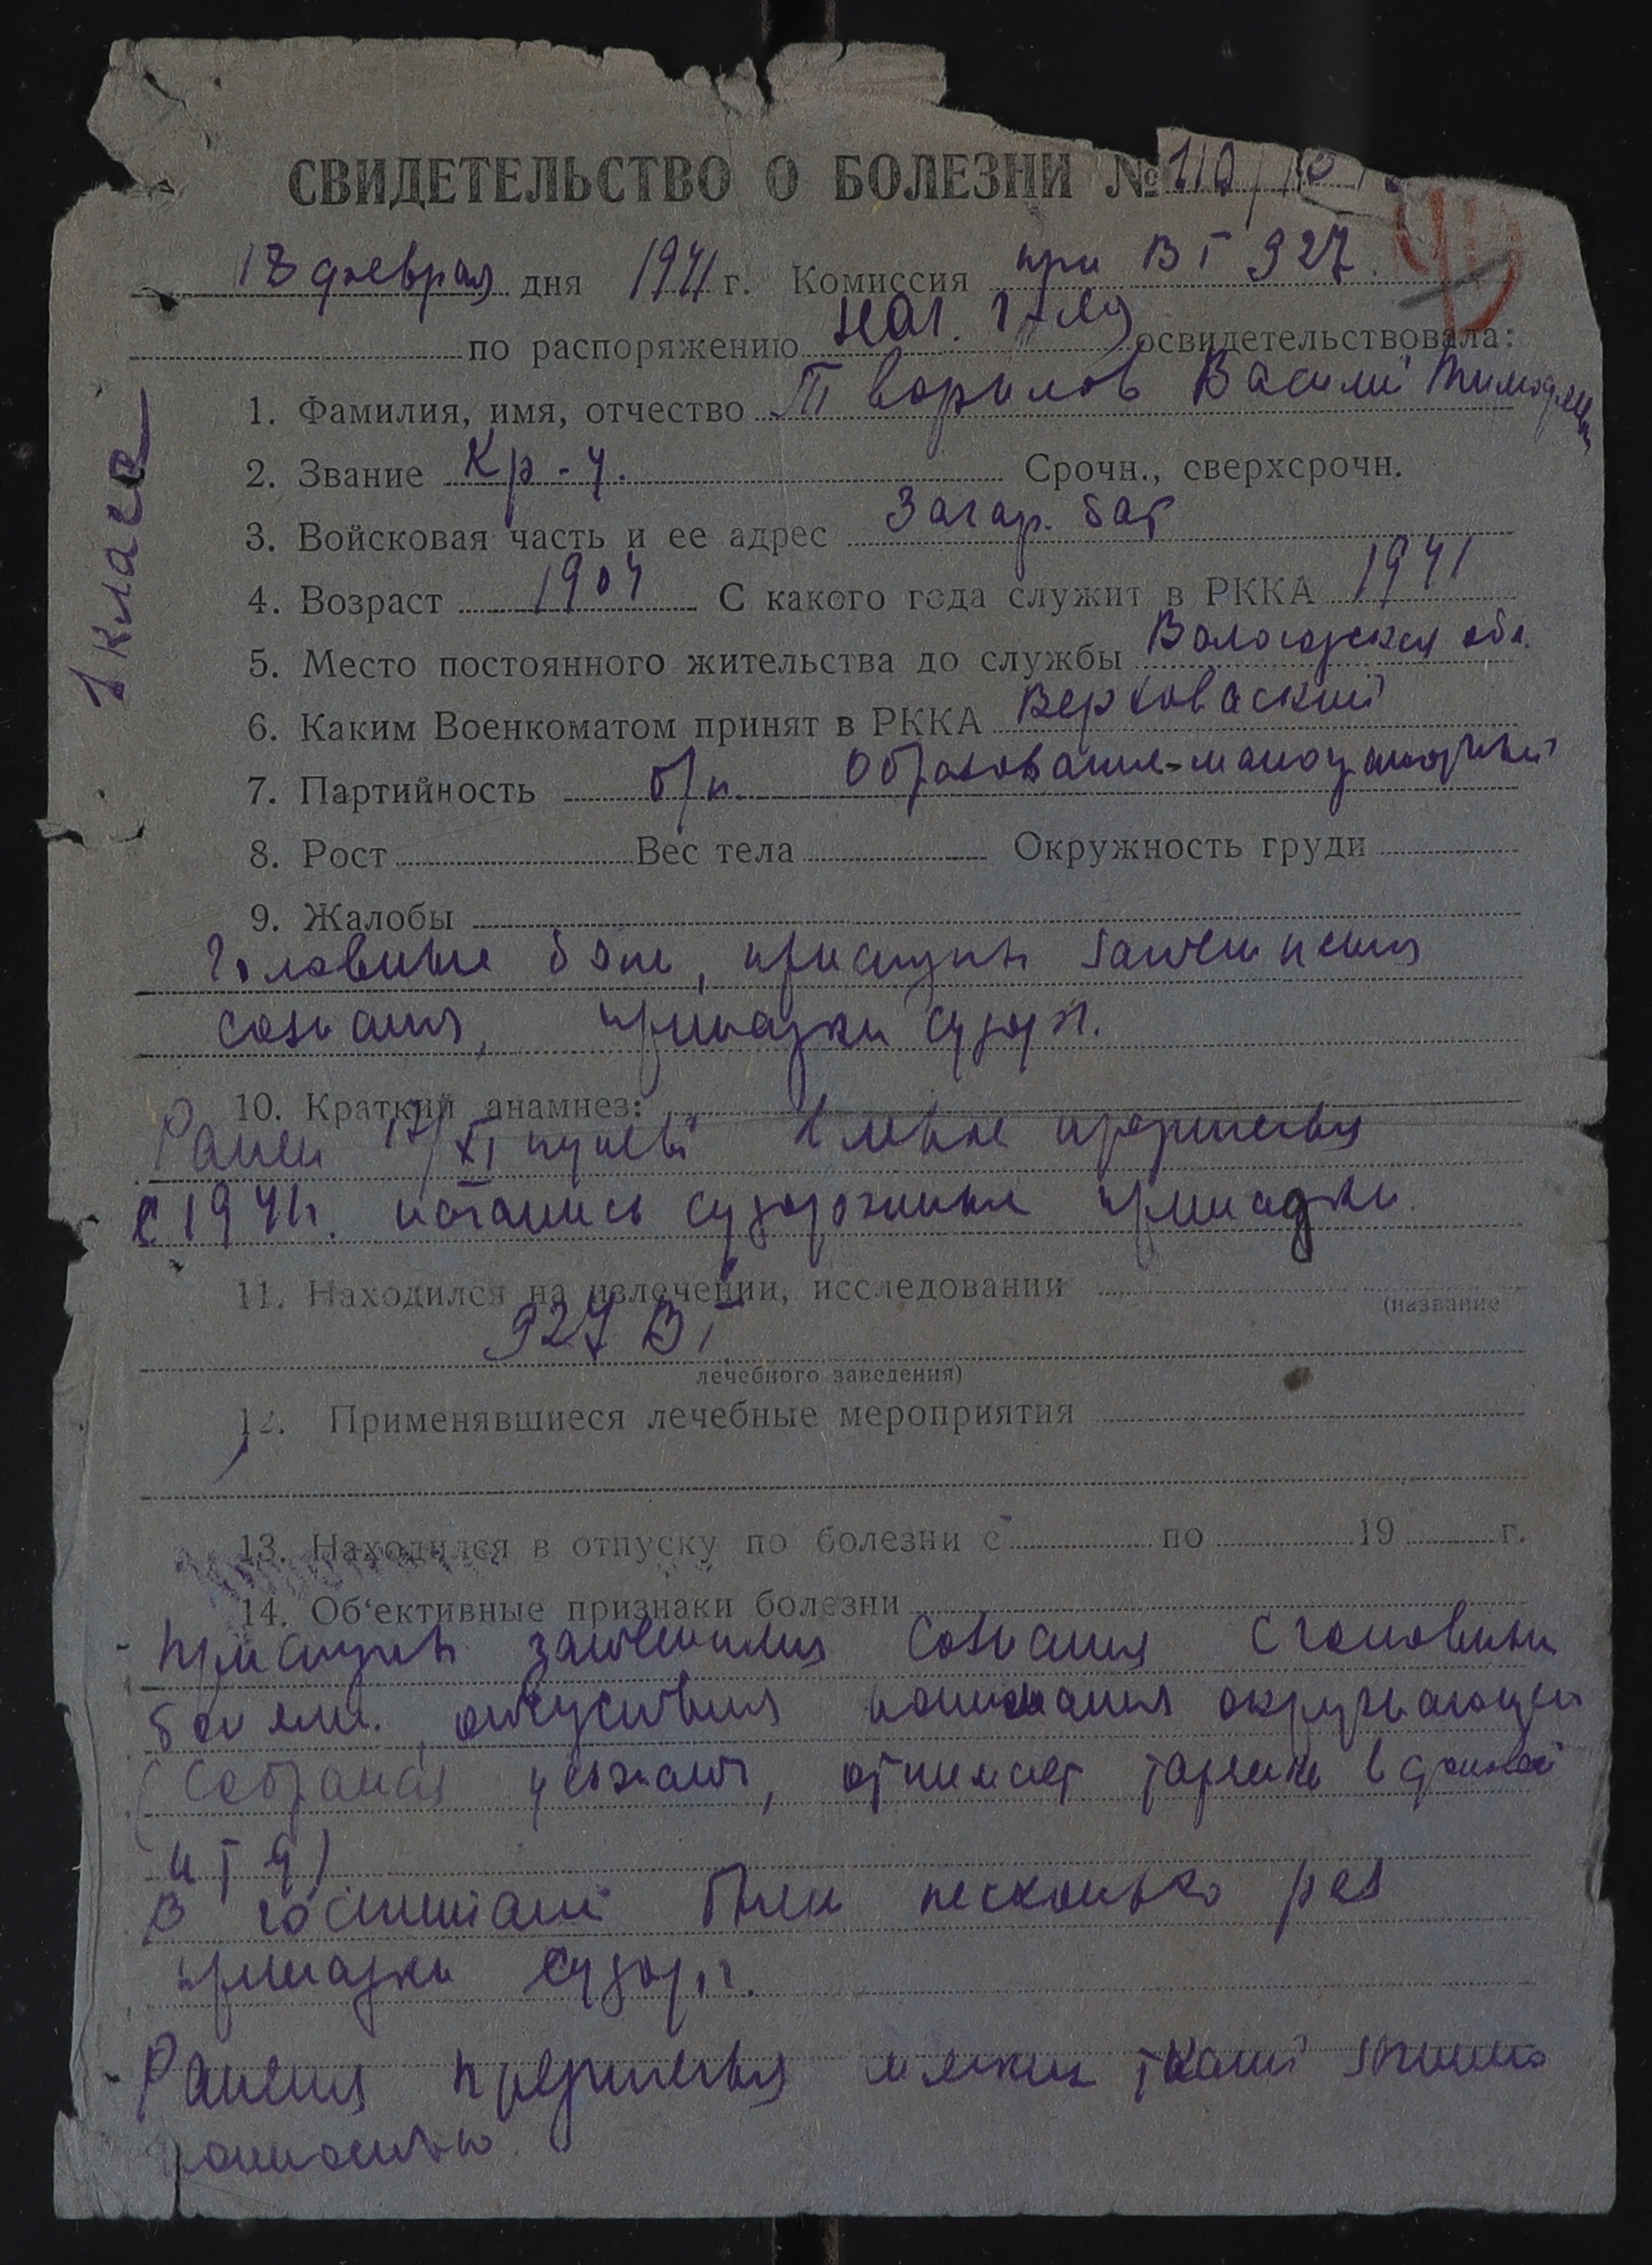 СВИДЕТЕЛЬСТВО О БОЛЕЗНИ №
18 февраля дня 1941 г. Комиссия при ВГ 927.
по распоряжению нач. г-ля освидетельствовала:
1. Фамилия, имя, отчество Творилов Василий Тимофеев
2. Звание Кр-ц. Срочн., сверхсрочн.
3. Войсковая часть и ее адрес бат
4. Возраст 1904 С какого года служит в РККА 1941
5. Место постоянного жительства до службы Вологодская обл.
6. Каким Военкоматом принят в РККА Верховаский
7. Партийность б/п. Образование-малограмотный
1 класс
8. Рост Вес тела Окружность груди
9. Жалобы
Головные боли, приступы затемнения
сознания, припадки судорог.
10. Краткий анамнез:
Ранен 17/XI пулей в левое предплечье
С 1941г. начались судорожные припадки.
11. Находился на излечении, исследовании
(название
927 ВГ
лечебного заведения)
12. Применявшиеся лечебные мероприятия
13. Находился в отпуску по болезни с по 19 г.
14. Об‘ективные признаки болезни
- Приступы затемнения сознания с головными
болями, отсутствия понимания окружающей
(Собрался уезжать, отнимает
и т д)
В госпитале были несколько раз
припадки судорог.
- Ранения предплечья мягких тканей зажило
полностью.